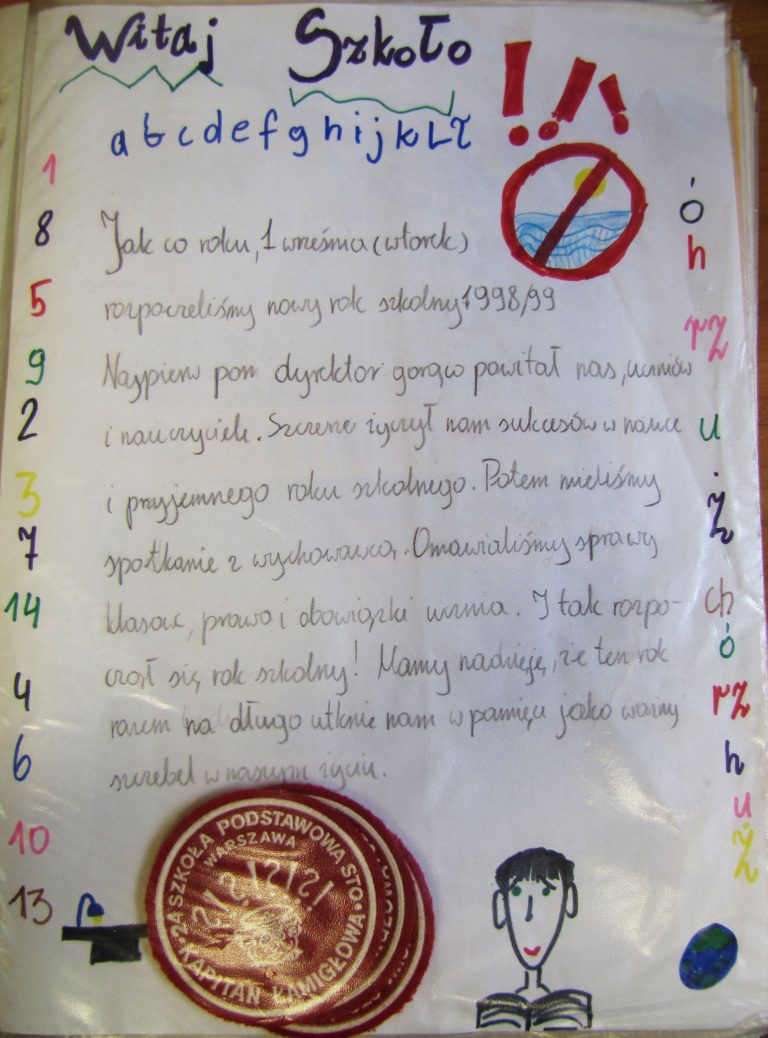 Witaj Szkoło
!!!
a b c d e f g h i j k L ł
1
8
5
9
2
3
7
14
4
6
10
13
Jak co roku, 1 września (wtorek)
rozpoczeliśmy nowy rok szkolny 1998/99
Najpierw pan dyrektor gorąco powitał nas, uczniów
i nauczycieli. Szczerze życzył nam sukcesów w nauce
i przyjemnego roku szkolnego. Potem mieliśmy
spotkanie z wychowawcą. Omawialiśmy sprawy
klasowe, prawa i obowiązki ucznia. I tak rozpo-
czął się rok szkolny! Mamy nadzieję, że ten rok
razem na długo utknie nam w pamięci jako ważny
szczebel w naszym życiu.
ó
h
rz
u
ż
ch
ó
rz
h
u
ż
24 SZKOŁA PODSTAWOWA STO
WARSZAWA
KAPITAN ŁAMIGŁOWA